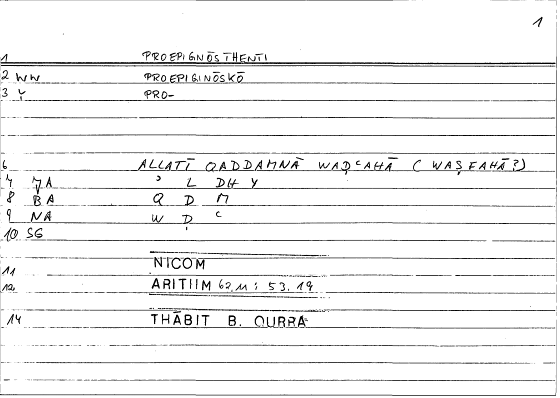 1
1 PROEPIGNŌSTHENTI
2 WW PROEPIGINŌSKŌ
3 Y PRO-
6 ALLATĪ QADDAMNĀ WAḌʿAHĀ ( WAṢFAHĀ?)
7 JA ʾ L DH Y
8 BA Q D M
9 NA W Ḍ ʿ
10 SG
11 NICOM
12 ARITIIM 62.11 : 53.19
14 THĀBIT B. QURRA